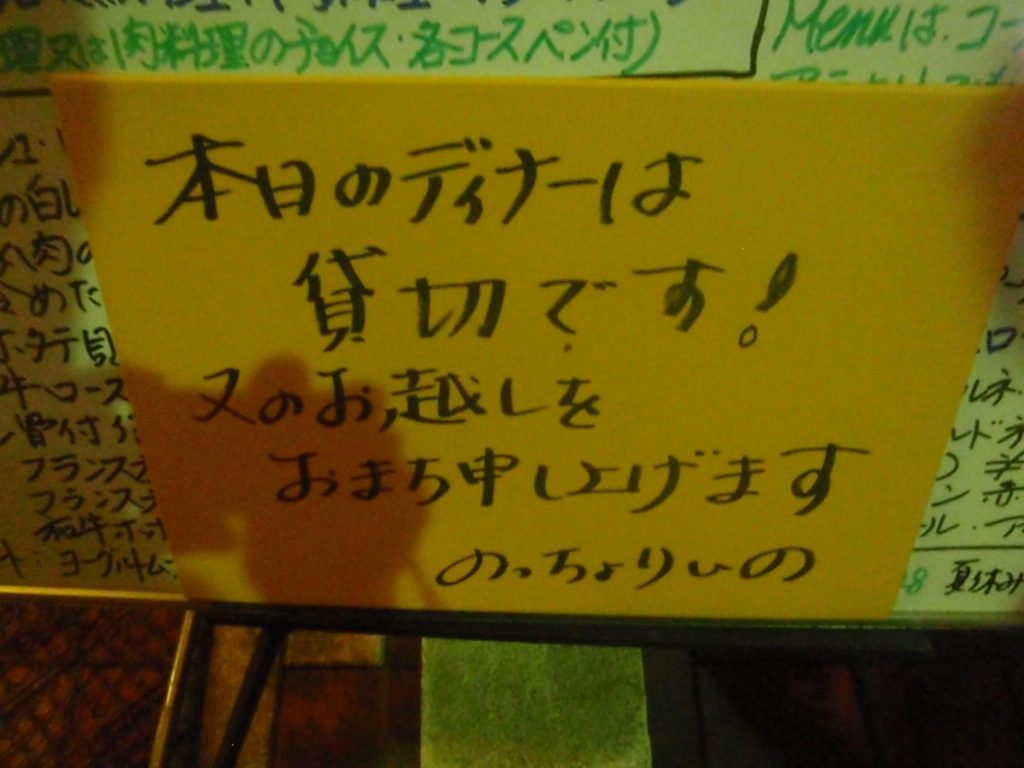 理又は肉料理のチョイス・各コースペン付)
Menuは.コー
本日のディナーは
貸切です!
又のお越しを
おまち申し上げます
のっちょりぃの
の白
肉の
冷めた
ホタテ貝
牛ロース
骨付
フランス
フランス
和牛ホホ
ヨーグルトム
夏休み